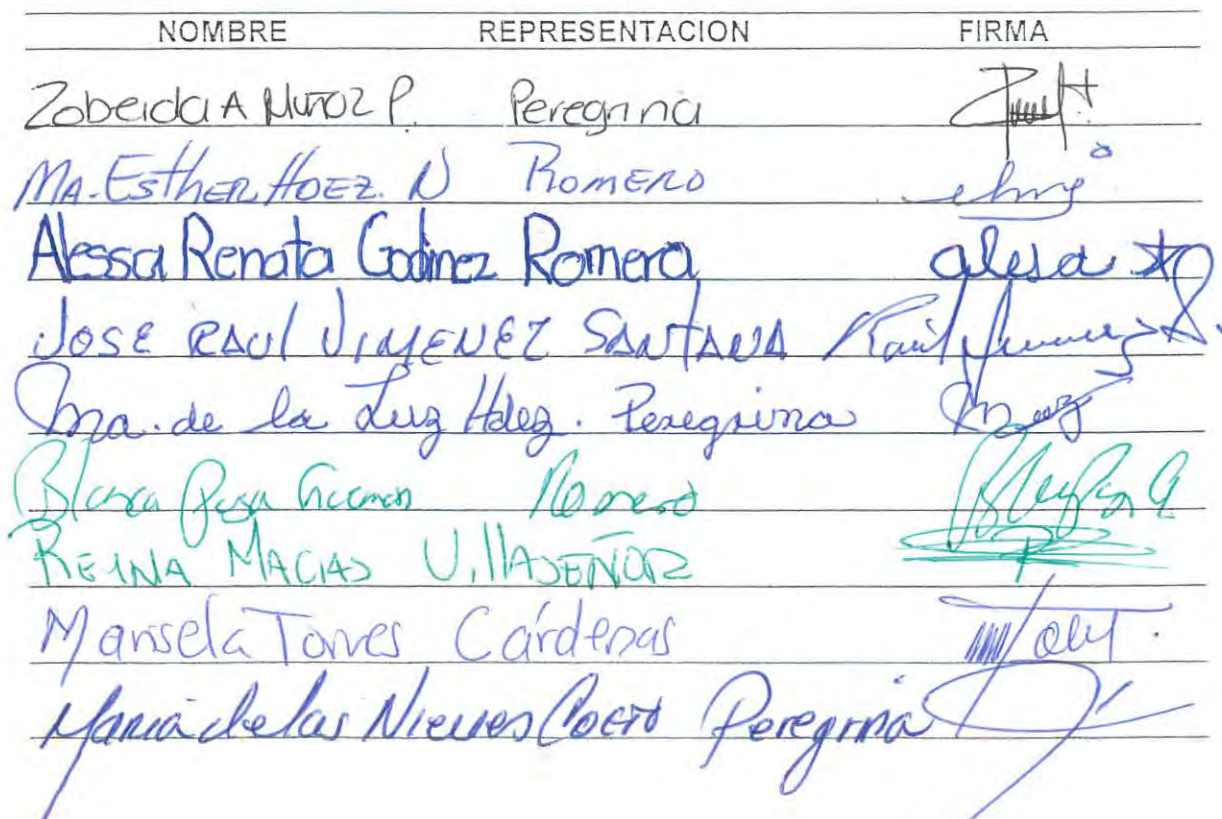 NOMBRE REPRESENTACION FIRMA
Zobeida A Muñoz P. Peregrina
MA. ESTHER HDEZ. N ROMERO
Alessa Renata Godinez Romero alesa
JOSE RAUl JIMENEZ SANTANA Raúl Jimenez S.
Ma. de la Luz Hdez. Peregrina
Blanca Rosa Guzman Romero
REINA MACIAS VillASEÑOR
Marisela Torres Cárdenas
María de las Nieves Peregrina